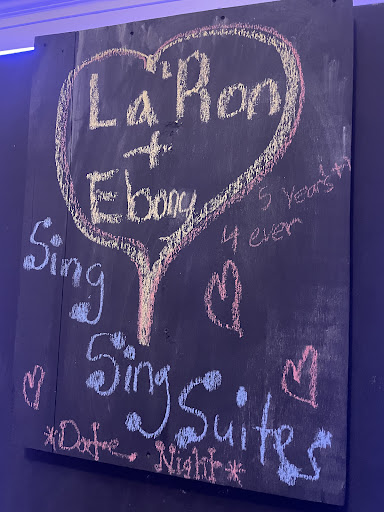 La'Ron
+
Ebony
5 years+
4 ever
Sing
Sing
Suites
*Date Night*